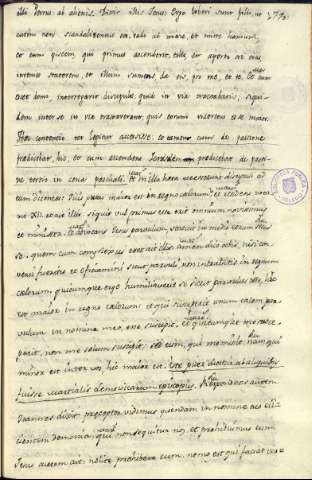 illi Petrus: ab alienis. Dixit illi Jesus: Ergo liberi sunt filii, ut
autem non scandalizemus eos, vade ad mare, et mitte hamum,
et eum piscem, qui primus ascenderit, tolle, et aperto ore eius
invenies staterem, et illum sumens da eis, pro me, et te. Et cum
esset domi, interrogavit discipulos, quid in via tractabatis, siqui-
dem inter se in via tractaverant, quis eorum illorum esset maior.
his, et cum ascendens
tertio in cena paschali. In illa hora accesserunt discipuli ad
eum dicentes: Quis putas maior est in regno caelorum, et residens voca-
vit XII. et ait illis siquis vult primus esse erit omnium novissimus
et minister. et advocans Jesus parvulum statuit in medio eorum
quem cum complexus esset ait illis amen dico vobis, nisi con-
versi fueritis et efficiamini sicut parvuli non intrabitis in regnum
caelorum, quicumque ergo humiliaverit se sicut parvulus iste, hic
est maior in regno caelorum: et qui susceperit unum talem par-
vulum in nomine meo, me suscipit, et quicumque me susce-
perit, non me solum suscipit, sed eum, qui me misit, nam qui
minor est inter vos hic maior est.
fuisse martialis Lemovicarum episcopus. Respondens autem
Joannes dixit: praeceptor vidimus quendam in nomine tuo eii-
cientem daemonia, qui non sequitur nos, et prohibuimus eum
Jesus autem ait: nolite prohibere eum, nemo est qui faciat